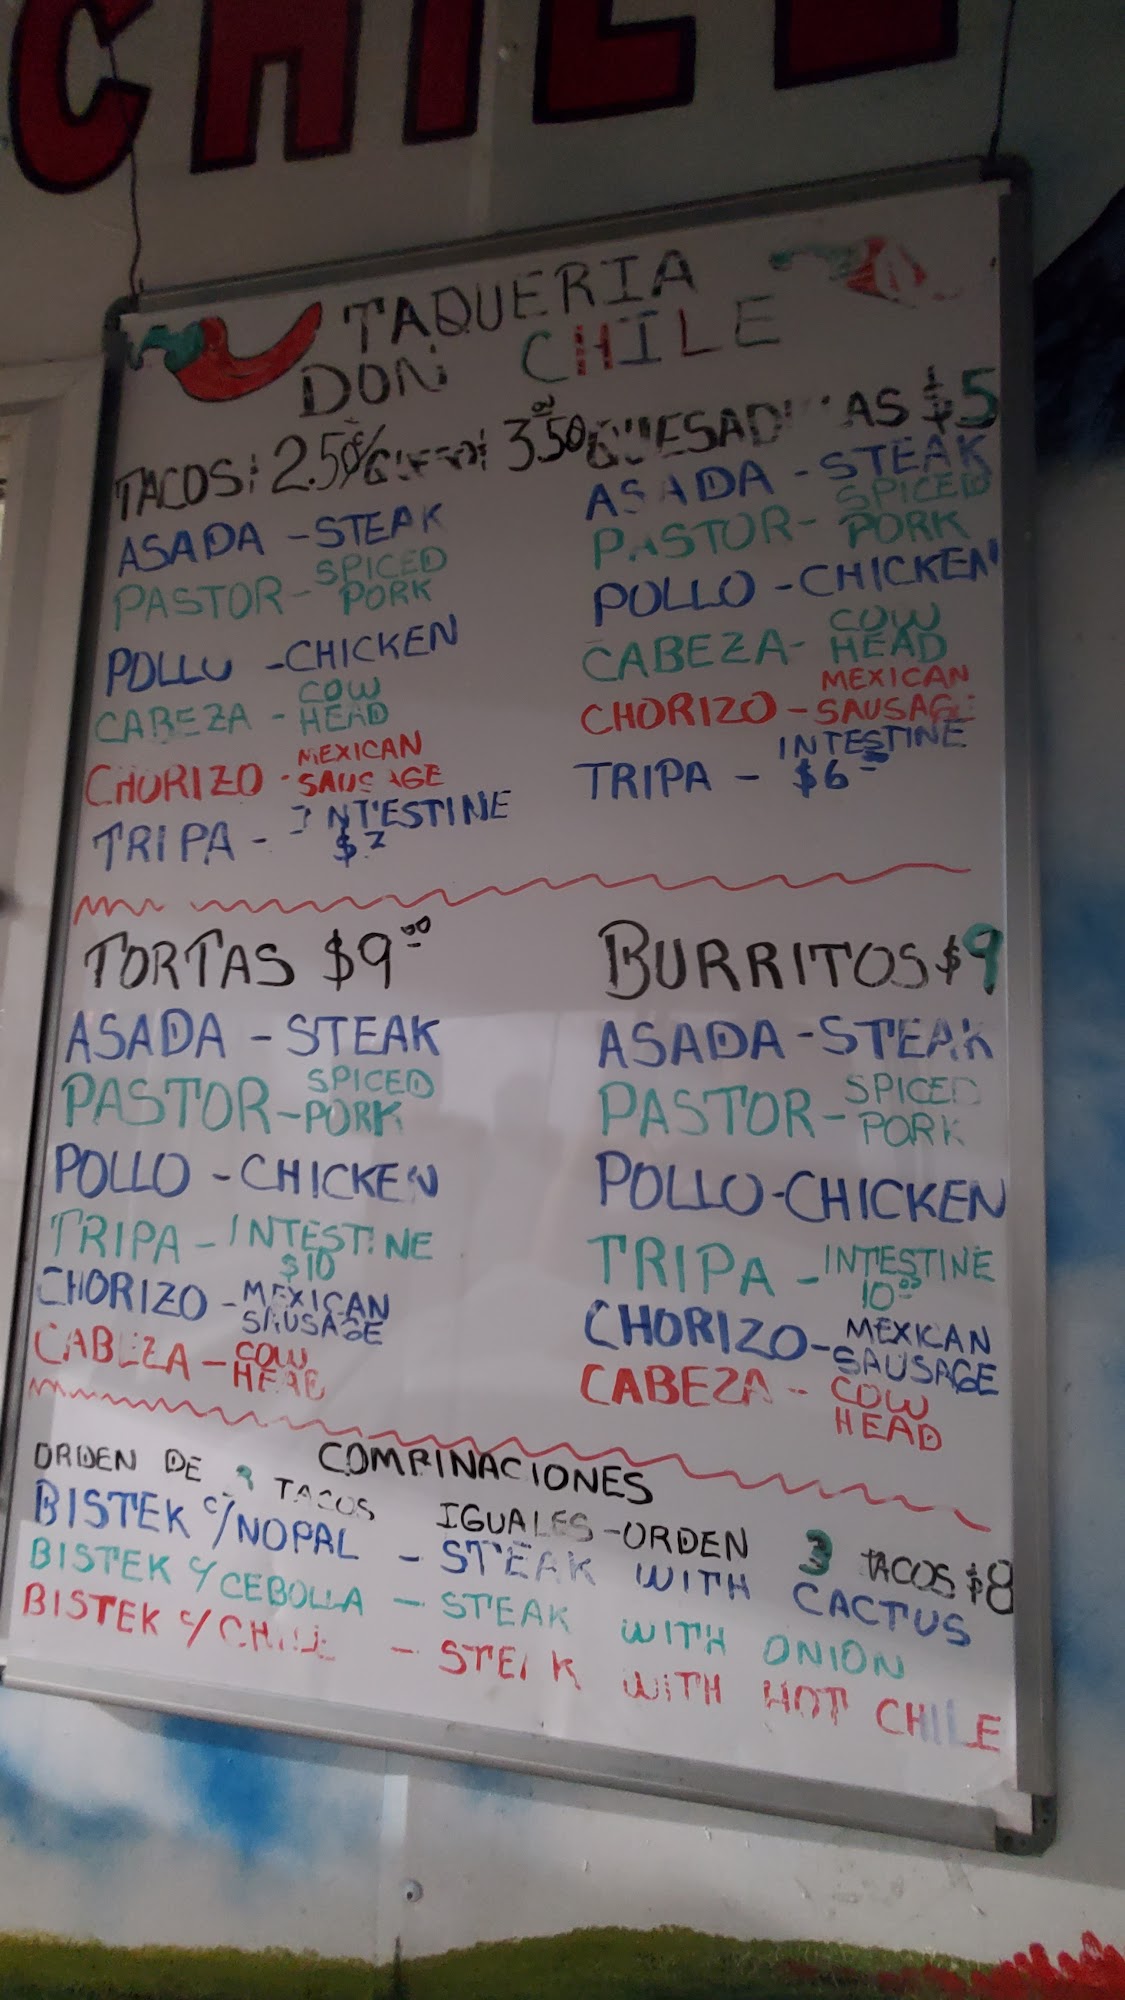 CHILE
TAQUERIA
DON CHILE
TACOS: 2.50 c/ 3.50
ASADA - STEAK
PASTOR - SPICED
PORK
POLLO - CHICKEN
CABEZA - COW
HEAD
CHORIZO - MEXICAN
SAUSAGE
TRIPA - INTESTINE
QUESADILLAS $5
ASADA - STEAK
PASTOR - SPICED
PORK
POLLO - CHICKEN
CABEZA - COW
HEAD
CHORIZO - MEXICAN
SAUSAGE
TRIPA - INTESTINE
$6
TORTAS $9.00
ASADA - STEAK
PASTOR - SPICED
PORK
POLLO - CHICKEN
TRIPA - INTESTINE
$10
CHORIZO - MEXICAN
SAUSAGE
CABEZA - COW
HEAD
BURRITOS $9
ASADA - STEAK
PASTOR - SPICED
PORK
POLLO - CHICKEN
TRIPA - INTESTINE
10.00
CHORIZO - MEXICAN
SAUSAGE
CABEZA - COW
HEAD
COMBINACIONES
ORDEN DE TACOS IGUALES - ORDEN 3 TACOS $8
BISTEK c/NOPAL - STEAK WITH CACTUS
BISTEK c/CEBOLLA - STEAK WITH ONION
BISTEK c/CHILE - STEAK WITH HOT CHILE